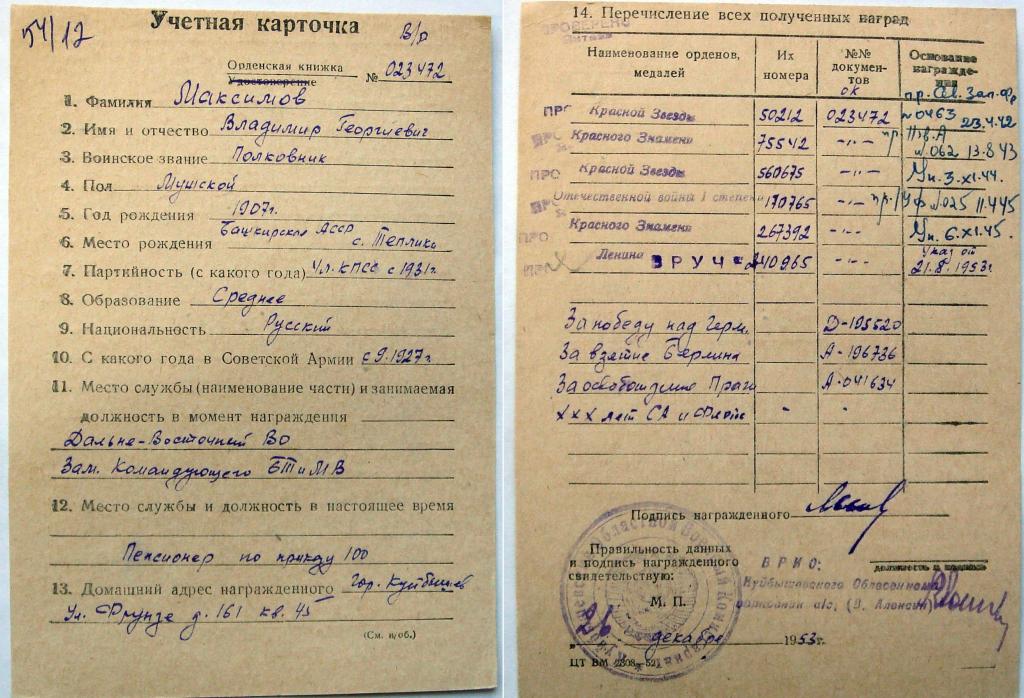 54/12
Учетная карточка
В/р
Орденская книжка
Удостоверение № 023472
1. Фамилия Максимов
2. Имя и отчество Владимир Георгиевич
3. Воинское звание Полковник
4. Пол Мужской
5. Год рождения 1907г.
6. Место рождения Башкирская АССР
с. Тепляки
7. Партийность (с какого года) Чл. КПСС с 1931г
8. Образование Среднее
9. Национальность Русский
10. С какого года в Советской Армии с 9.1927г.
11. Место службы (наименование части) и занимаемая
должность в момент награждения
Дальне-Восточный ВО
Зам. Командующего БТ и МВ
12. Место службы и должность в настоящее время
Пенсионер по приказу 100
13. Домашний адрес награжденного Гор. Куйбышев
Ул. Фрунзе д. 161 кв. 45
(См. н/об.)
14. Перечисление всех полученных наград
ПРОВЕРЕНО
Наименование орденов, медалей Их номера №№ документов ОК Основание награждения
Красной Звезды 50212 023472 пр. Сев. Зап. Фр №0463 23.4.42
Красного Знамени 75542 -"- пр. №062 13.8.43
Красной Звезды 560675 -"- Ук. 3.XI.44.
Отечественной войны I степени 170765 -"- пр. №025 11.4.45
Красного Знамени 267392 -"- Ук. 6.XI.45.
Ленина ВРУЧ 240965 -"- Указ от 21.8.1953г
За победу над Герм. D-195520
За взятие Берлина А-196736
За освобождение Праги А-041634
XXX лет СА и Флота - -
Подпись награжденного
Правильность данных
и подпись награжденного
свидетельствую:
М. П.
ВРИО:
должность и
Куйбышевского Областного
26 декабря 1953г.
ЦТ ВМ